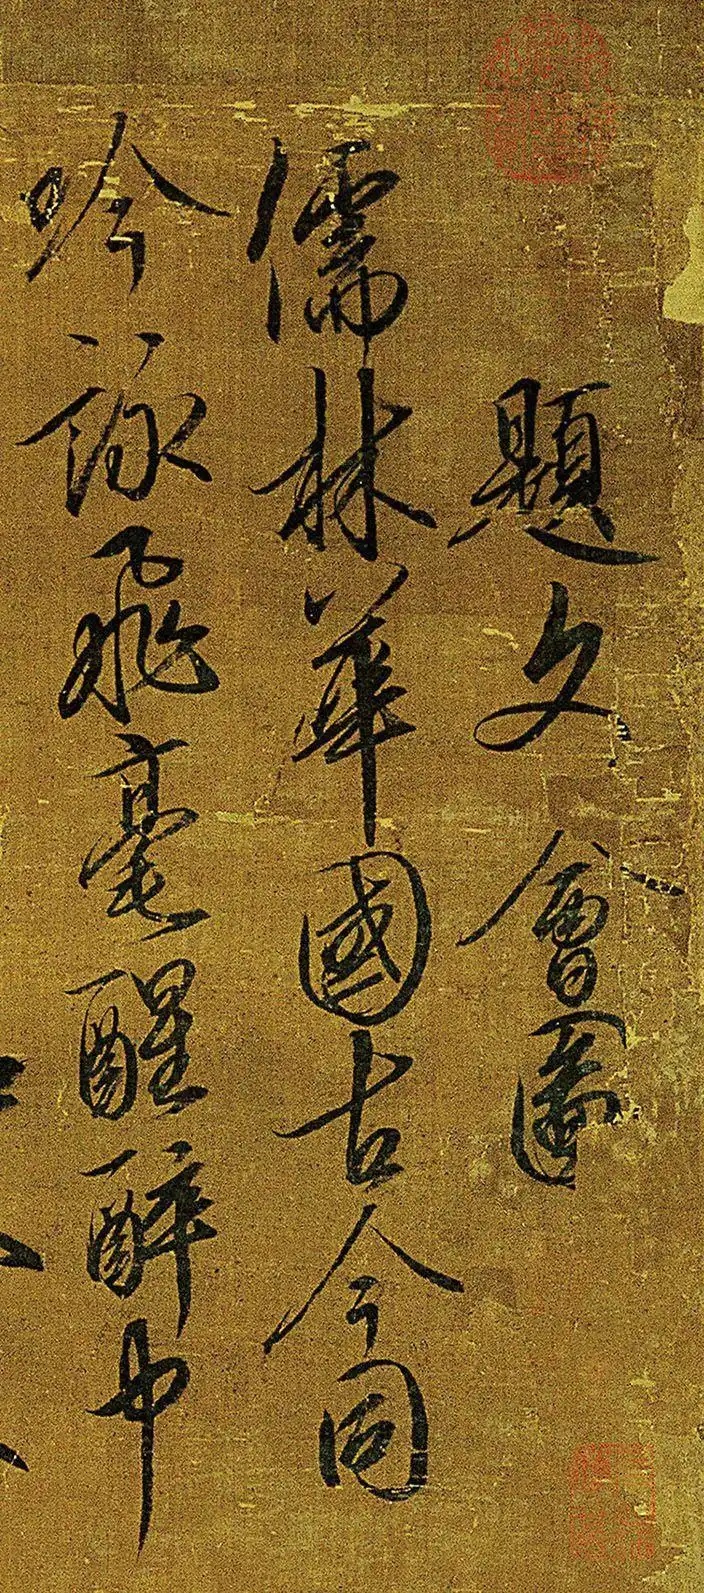 題文會圖
儒林華國古今同
吟詠飛毫醒醉中